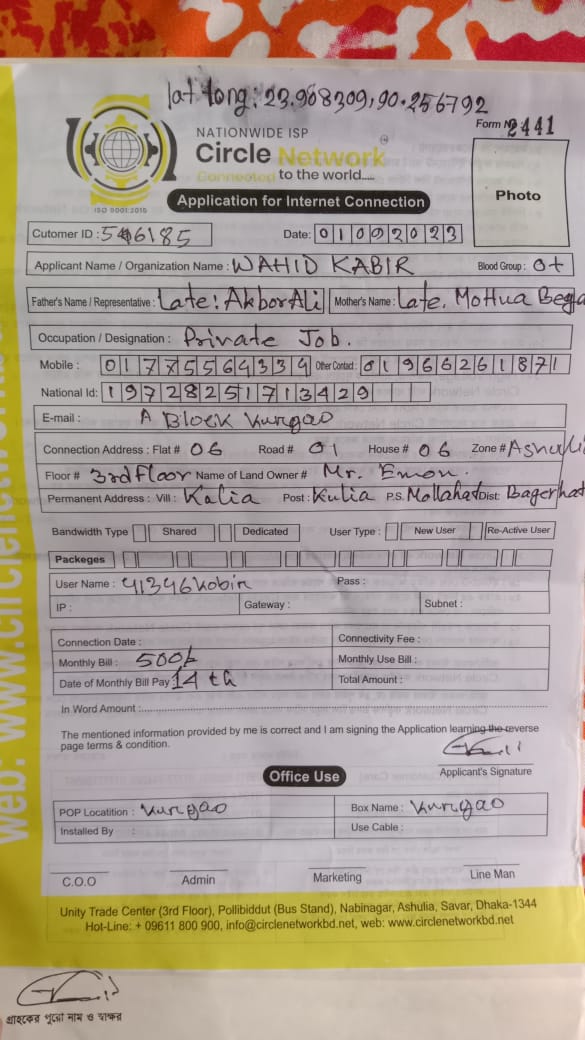 lat long: 23.908309, 90.256792
NATIONWIDE ISP
Form No 2441
Circle Network
Connected to the world....
ISO 9001:2015
Application for Internet Connection
Photo
Cutomer ID : 546185 Date: 01092023
Applicant Name / Organization Name : WAHID KABIR Blood Group : O+
Father's Name / Representative : Late: Akbor Ali Mother's Name : Late. Mottua Bega
Occupation / Designation : Private Job.
Mobile : 01775564334 Other Contact : 01966261871
National Id: 19728251713429
E-mail : A Block Kurgao
Connection Address : Flat # 06 Road # 01 House # 06 Zone # Ashuli
Floor # 3rd Floor Name of Land Owner # Mr. Emon.
Permanent Address : Vill : Kalia Post : Kulia P.S. Mollahat Dist: Bagerhat
Bandwidth Type Shared Dedicated User Type : New User Re-Active User
Packeges
User Name : 41346kobir Pass :
IP : Gateway : Subnet :
Connection Date : Connectivity Fee :
Monthly Bill : 500/- Monthly Use Bill :
Date of Monthly Bill Pay : 14 th Total Amount :
In Word Amount :
The mentioned information provided by me is correct and I am signing the Application learning the reverse
page terms & condition.
Applicant's Signature
Office Use
POP Locatition : Kurgao Box Name : Kurgao
Installed By : Use Cable :
C.O.O Admin Marketing Line Man
Unity Trade Center (3rd Floor), Pollibiddut (Bus Stand), Nabinagar, Ashulia, Savar, Dhaka-1344
Hot-Line: + 09611 800 900, info@circlenetworkbd.net, web: www.circlenetworkbd.net
গ্রাহকের পুরো নাম ও স্বাক্ষর